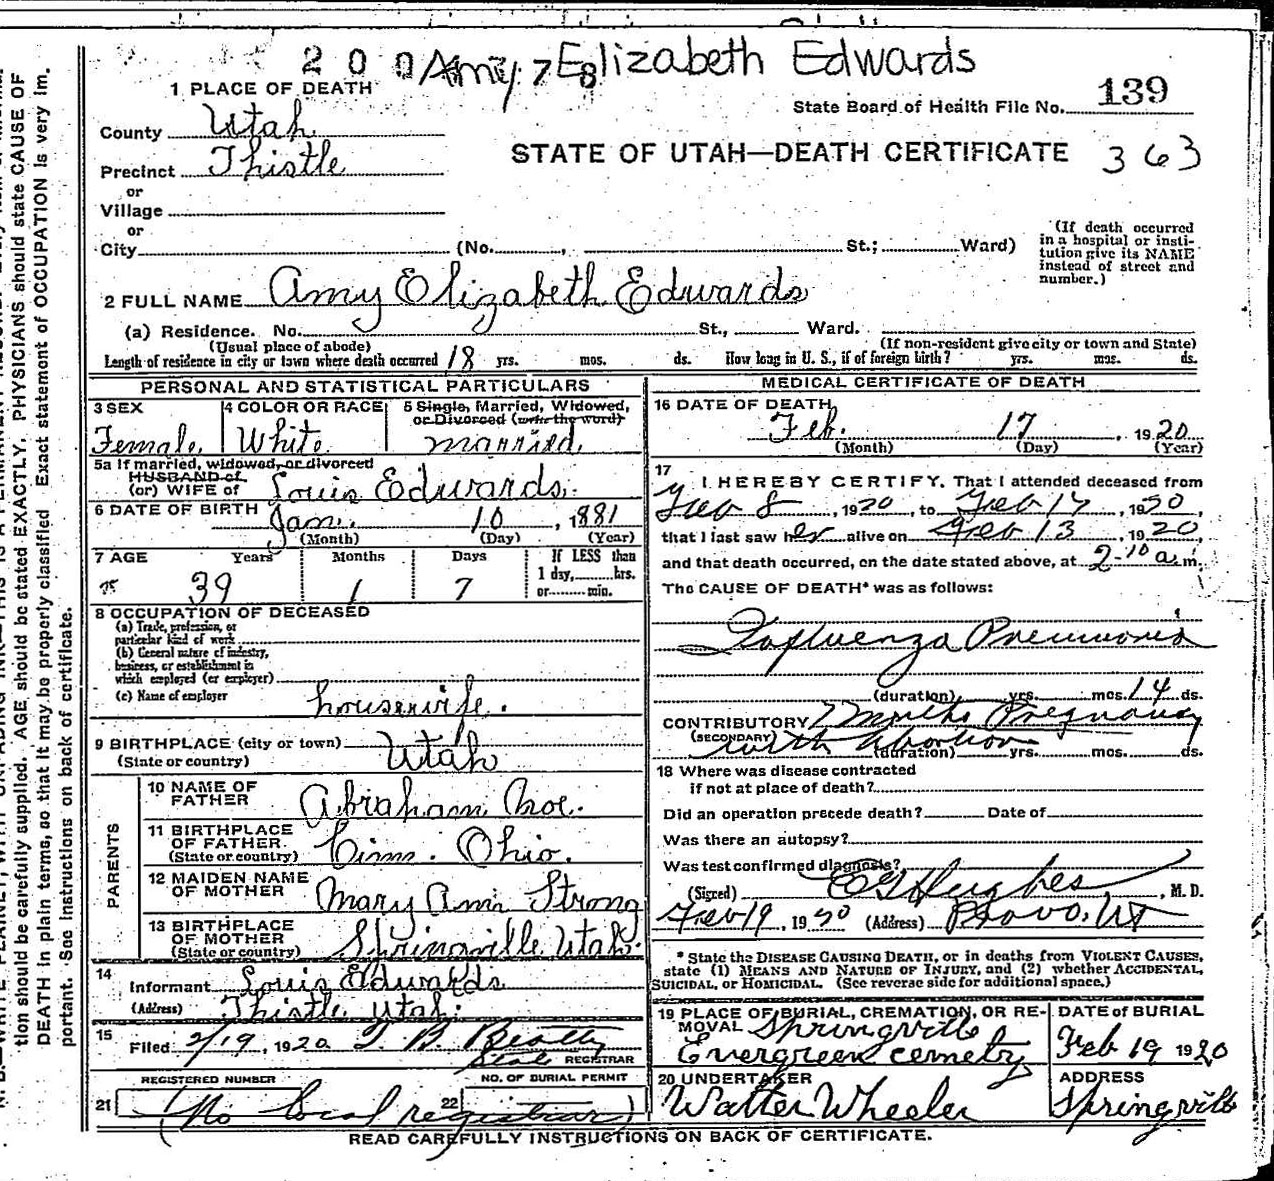 2 0 0 Amy 7 8 Elizabeth Edwards
1 PLACE OF DEATH
State Board of Health File No. 139
County Utah
STATE OF UTAH—DEATH CERTIFICATE 363
Precinct Thistle
or
Village
or
City (No. , St.; Ward)
(If death occurred
in a hospital or insti-
tution give its NAME
instead of street and
number.)
2 FULL NAME Amy Elizabeth Edwards
(a) Residence. No. St., Ward.
(Usual place of abode) (If non-resident give city or town and State)
Length of residence in city or town where death occurred 18 yrs. mos. ds. How long in U. S., if of foreign birth? yrs. mos. ds.
PERSONAL AND STATISTICAL PARTICULARS
3 SEX 4 COLOR OR RACE 5 Single, Married, Widowed,
or Divorced (write the word)
Female. White. married.
5a If married, widowed, or divorced
HUSBAND of
(or) WIFE of Louis Edwards.
6 DATE OF BIRTH Jan. 10, 1881
(Month) (Day) (Year)
7 AGE Years Months Days If LESS than
1 day, hrs.
or min.
39 1 7
8 OCCUPATION OF DECEASED
(a) Trade, profession, or
particular kind of work
(b) General nature of industry,
business, or establishment in
which employed (or employer)
(c) Name of employer
housewife.
9 BIRTHPLACE (city or town) Utah
(State or country)
PARENTS
10 NAME OF
FATHER Abraham Noe.
11 BIRTHPLACE
OF FATHER Cinn. Ohio.
(State or country)
12 MAIDEN NAME
OF MOTHER Mary Ann Strong
13 BIRTHPLACE
OF MOTHER Springville Utah.
(State or country)
14
Informant Louis Edwards
(Address) Thistle Utah.
15
Filed 2/19, 1920 T. B. Beatty
State REGISTRAR
REGISTERED NUMBER NO. OF BURIAL PERMIT
21 22
(No local registrar)
MEDICAL CERTIFICATE OF DEATH
16 DATE OF DEATH
Feb. 17, 1920
(Month) (Day) (Year)
17
I HEREBY CERTIFY, That I attended deceased from
Feb 8, 1920, to Feb 17, 1920,
that I last saw her alive on Feb 13, 1920,
and that death occurred, on the date stated above, at 2-10 a.m.
The CAUSE OF DEATH* was as follows:
Influenza Pneumonia
(duration) yrs. mos. 14 ds.
CONTRIBUTORY 7 months Pregnancy
(SECONDARY) with abortion
(duration) yrs. mos. ds.
18 Where was disease contracted
if not at place of death?
Did an operation precede death? Date of
Was there an autopsy?
Was test confirmed diagnosis?
(Signed) Hughes, M. D.
Feb 19, 1920 (Address) Provo, Ut
* State the DISEASE CAUSING DEATH, or in deaths from VIOLENT CAUSES,
state (1) MEANS AND NATURE OF INJURY, and (2) whether ACCIDENTAL,
SUICIDAL, or HOMICIDAL. (See reverse side for additional space.)
19 PLACE OF BURIAL, CREMATION, OR RE-
MOVAL Springville
Evergreen cemetry
DATE of BURIAL
Feb 19 1920
20 UNDERTAKER
Walter Wheeler
ADDRESS
Springville
READ CAREFULLY INSTRUCTIONS ON BACK OF CERTIFICATE.
tion should be carefully supplied. AGE should be stated EXACTLY. PHYSICIANS should state CAUSE OF
DEATH in plain terms, so that it may be properly classified. Exact statement of OCCUPATION is very im-
portant. See instructions on back of certificate.